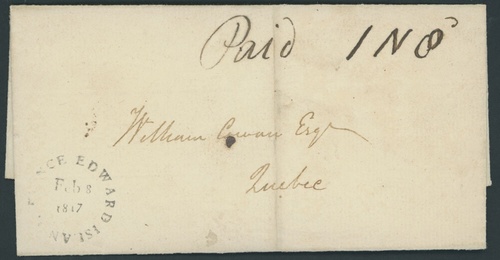 Paid 1 N 8
William Cowan Esqr
Quebec
CE EDWARD ISLAN
Feb 8
1817